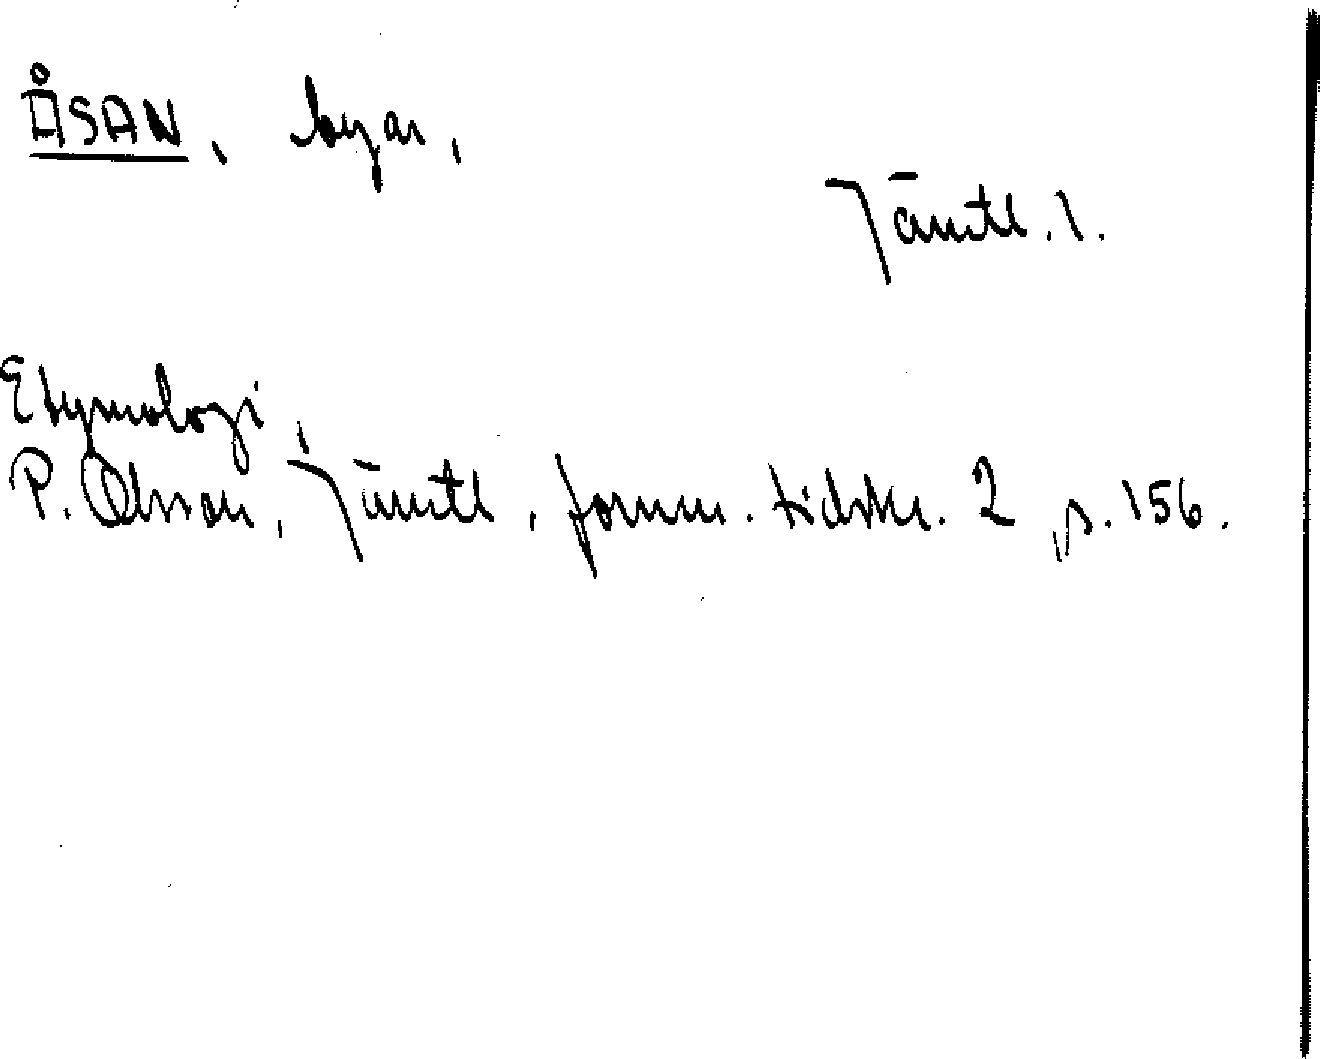 ÅSAN, byar,
Jämtl. l.
Etymologi,
P. Olsson, Jämtl. fornm. tidskr. 2, s. 156.